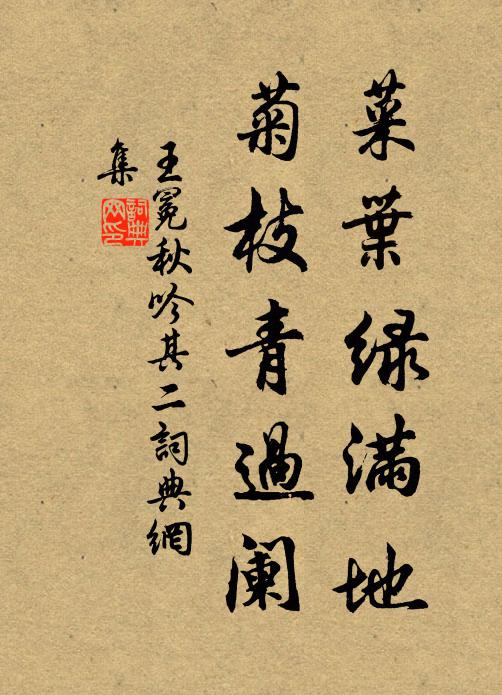 菜葉绿满地
菊枝青過阑
王冕秋吟其二詞典網
集
詞典
网印